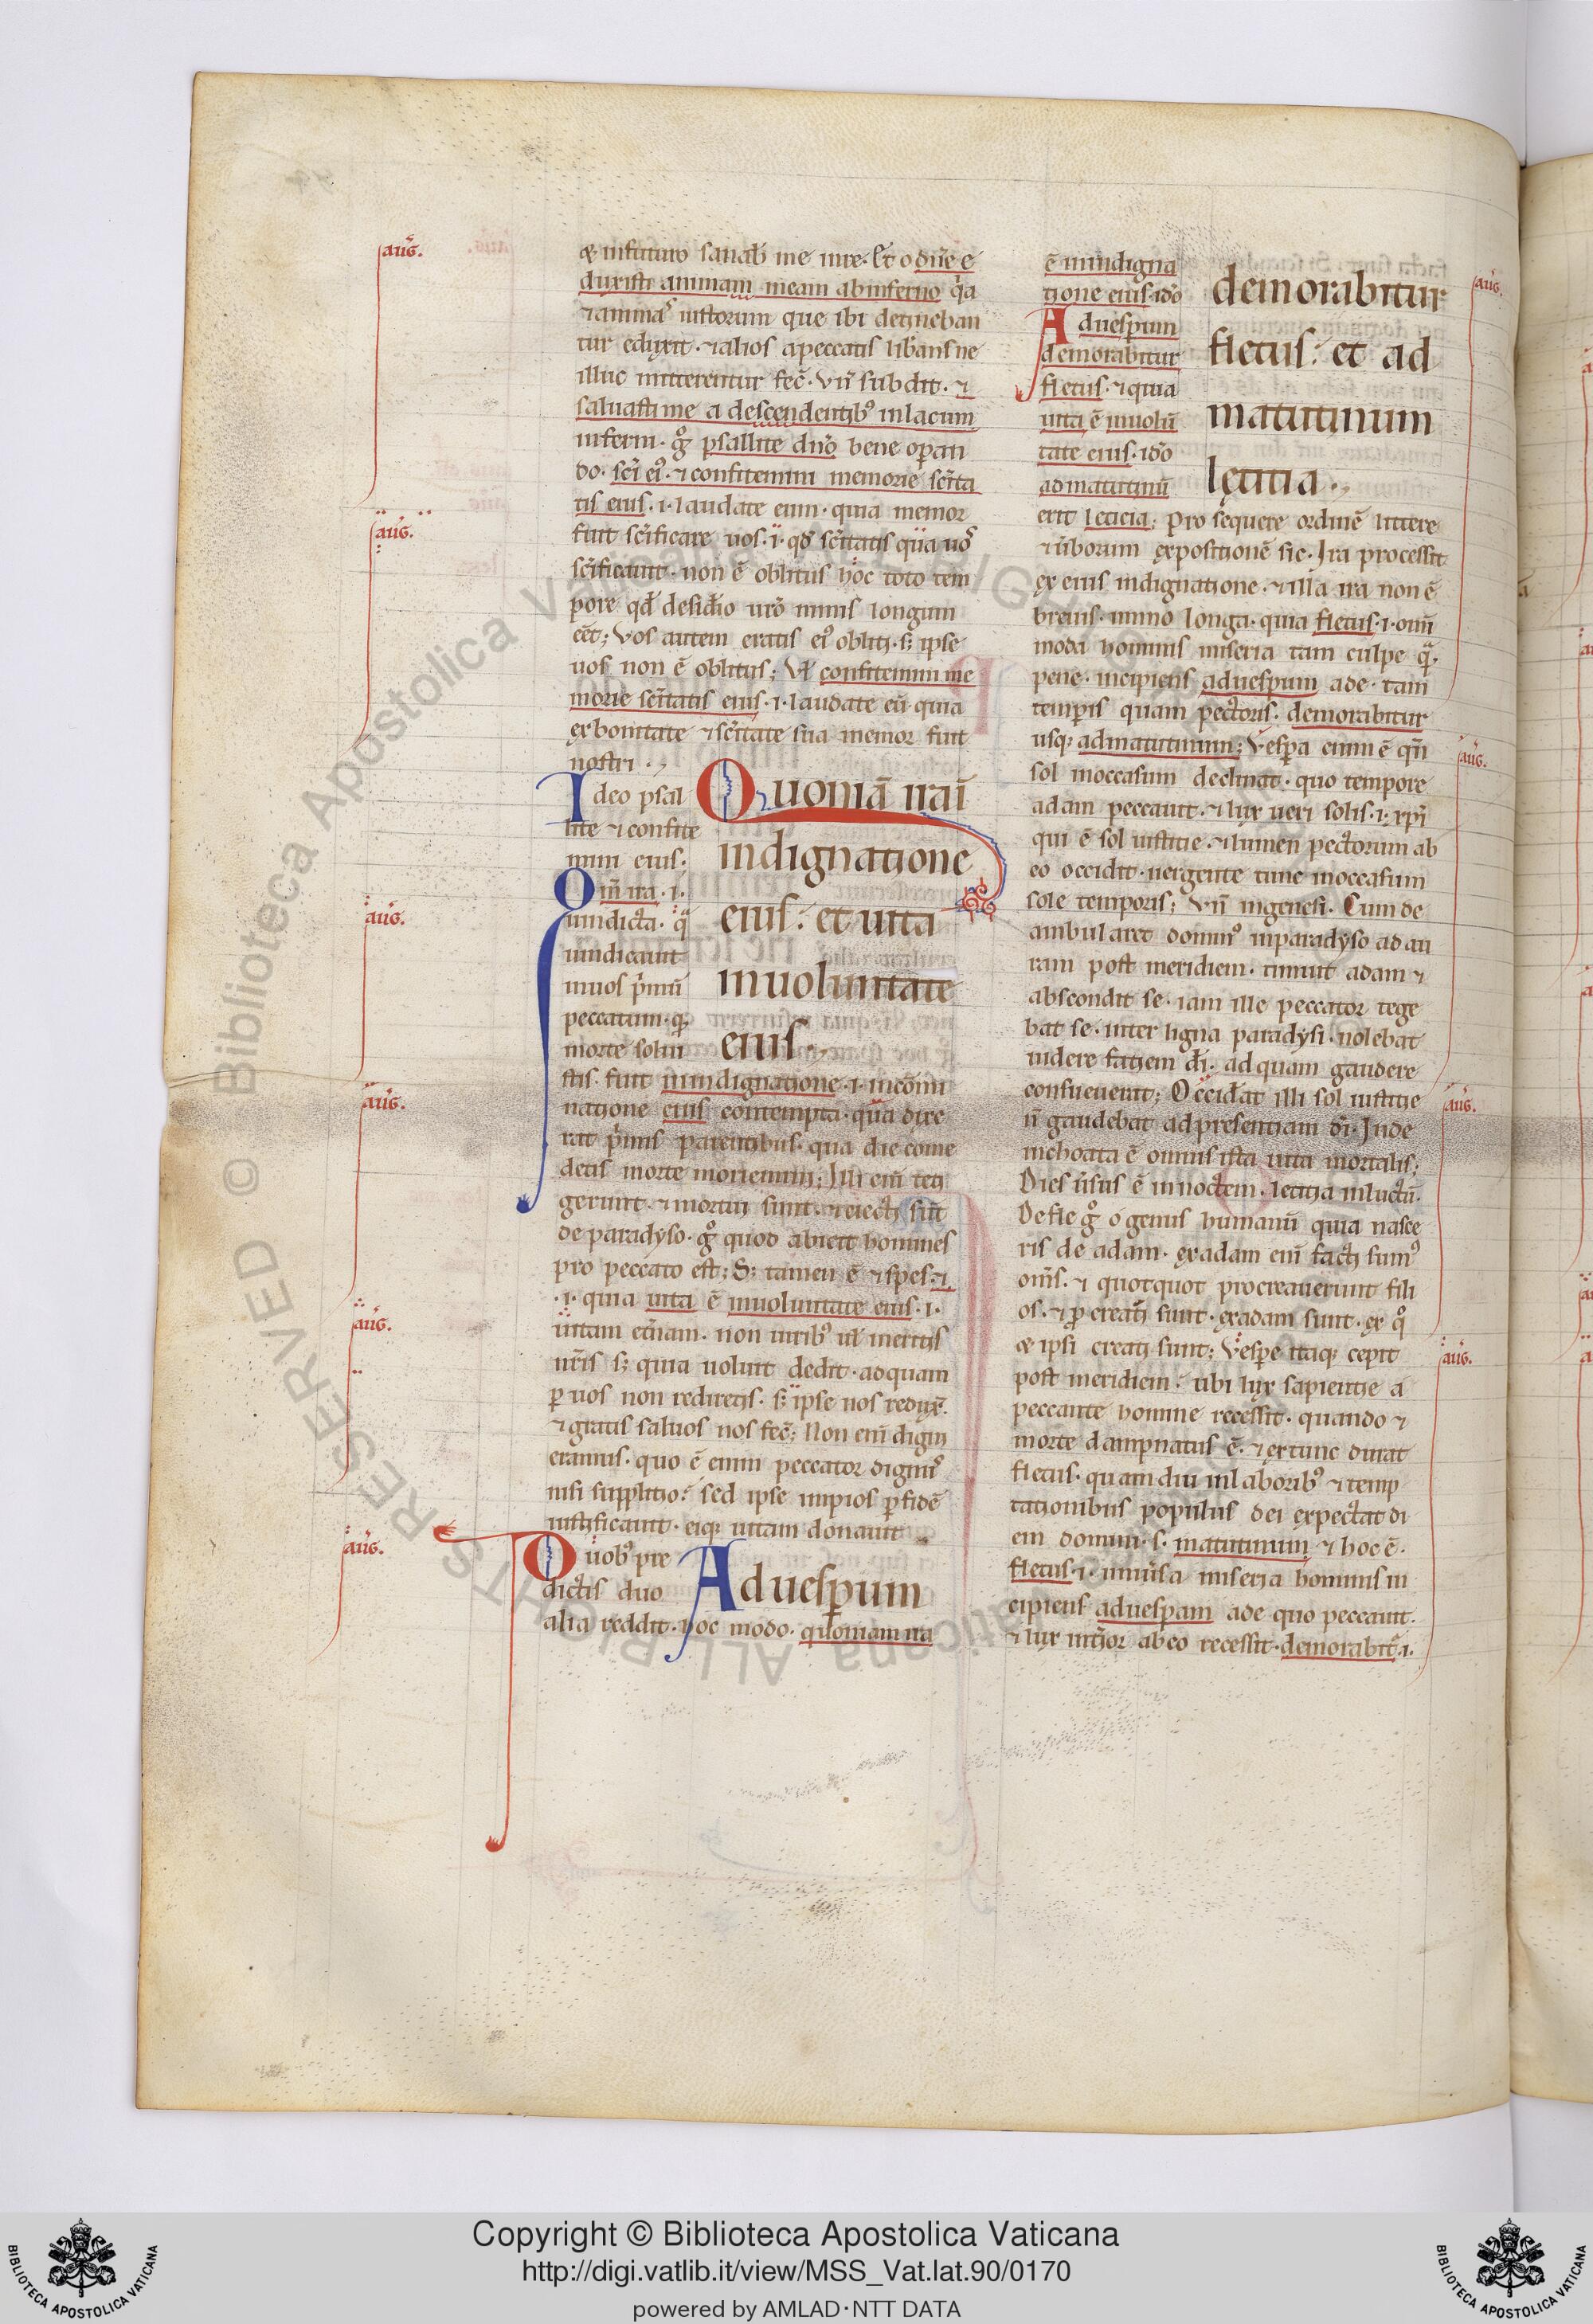 aug̃.
⁊ infuturo sanab̃ me inte. Et o dñe e
duxisti animam meam abinferno q̃a
⁊animaˢ iustorum que ibi detineban
tur eduxit. ⁊alios apeccatis lib̃ans ne
illuc mitterentur fec̃. Vñ subdit. ⁊
saluasti me a descendentib⁹ inlacum
inferni. g̊ psallite dño bene opan
do. sc̃i ei⁹. ⁊ confitemini memorie sc̃ita
tis eius. i. laudate eum. quia memor
aug̃.
fuit sc̃ificare uos. i. qd̃ sc̃itatis qua uos
sc̃ificauit. non ẽ oblitus hoc toto tem
pore qd̃ desid̃io ur̃o nimis longum
eẽt; Vos autem eratis ei⁹ obliti. s; ipse
uos non ẽ oblitus; Vl̃ confitemini me
morie sc̃itatis eius. i. laudate eũ. quia
ex bonitate ⁊sc̃itate sua memor fuit
nostri.
Ideo psal
lite ⁊ confite
mini eius.
Qm̃ ira. i.
aug̃.
uindicta. q̃
uindicauit
inuos p̃mũ
peccatum. q;
morte solui
Quoniã ira ĩ
indignatione
eius: et uita
inuoluntate
eius.
stis. fuit inindignatione. i. incõmi
aug̃.
natione eius contempta. qua dixe
rat p̃mis parentibus. qua die come
detis morte moriemini; Illi eñi teti
gerunt. ⁊ mortui sunt. ⁊eiecti sũt
de paradyso. g̊ quod abiecit homines
pro peccato est; S; tamen ẽ ⁊spes. ⁊
.i. quia uita ẽ inuoluntate eius. i.
aug̃.
uitam et̃nam. non uirib⁹ ul̃ meritis
ur̃is s; quia uoluit dedit. adquam
p uos non rediretis. s; ipse uos redux̃.
⁊gratis saluos nos fec̃; Non eñi digni
eramus. quo ẽ enim peccator dign⁹
nisi supplitio: sed ipse impios p fidẽ
iustificauit. eiq; uitam donauit
aug̃.
Duob⁹ pre
dictis duo
alia reddit. hoc modo. quoniam ira
Ad uesp̃um
ẽ inindigna
tione eius. id̃o
Ad uesp̃um
demorabitur
fletus. ⁊quia
uita ẽ inuolũ
tate eius. id̃o
admatutinũ
demorabitur
fletus: et ad
matutinum
lętitia.
aug̃.
erit leticia; Prosequere ordinẽ littere
⁊ũborum expositionẽ sic. Ira processit
ex eius indignatione. ⁊illa ira non ẽ
breuis. immo longa. quia fletus. i. om̃i
moda hominis miseria tam culpe q̃.
pene. incipiens aduesp̃um ade. tam
temp̃is quam pectoris. demorabitur
usq; admatutinum; Vesp̃a enim ẽ qñ
aug̃.
sol inoccasum declinat. quo tempore
adam peccauit. ⁊ lux ueri solis. i. xp̃i
qui ẽ sol iustitie. ⁊lumen pectorum ab
eo occidit. uergente tunc inoccasum
sole temporis; Vñ ingenesi. Cum de
ambularet domin⁹ inparadyso ad au
ram post meridiem. timuit adam ⁊
abscondit se. iam ille peccator tege
bat se. inter ligna paradysi. nolebat
uidere faciem d̃i. ad quam gaudere
aug̃.
consueuerat; Occid̃at illi sol iustitie
ñ gaudebat ad presentiam d̃i. Inde
inchoata ẽ omnis ista uita mortalis;
Dies ũsus ẽ in noctem. letitia inluctũ.
Defle g̊ o genus humanũ quia nasce
ris de adam. exadam eñi facti sum⁹
om̃s. ⁊ quotquot procreauerunt fili
os. ⁊ p̃creati sunt. exadam sunt. ex q̊
⁊ ipsi creati sunt; Vespe itaq; cepit
aug̃.
post meridiem. ubi lux sapientie a
peccante homine recessit. quando ⁊
morte dampnatus ẽ. ⁊ extunc durat
fletus. quamdiu inlaborib⁹ ⁊ temp
tationibus populus dei expectat di
em domini. s. matutinum ⁊ hoc ẽ.
fletus. i. uniũsa miseria hominis in
cipiens aduespam ade quo peccauit.
⁊ lux int̃ior ab eo recessit. demorabit̃. i.
RESERVED © Biblioteca Apostolica Vaticana ALL RIGHTS
BIBLIOTECA APOSTOLICA VATICANA
Copyright © Biblioteca Apostolica Vaticana
http://digi.vatlib.it/view/MSS_Vat.lat.90/0170
powered by AMLAD·NTT DATA
BIBLIOTECA APOSTOLICA VATICANA